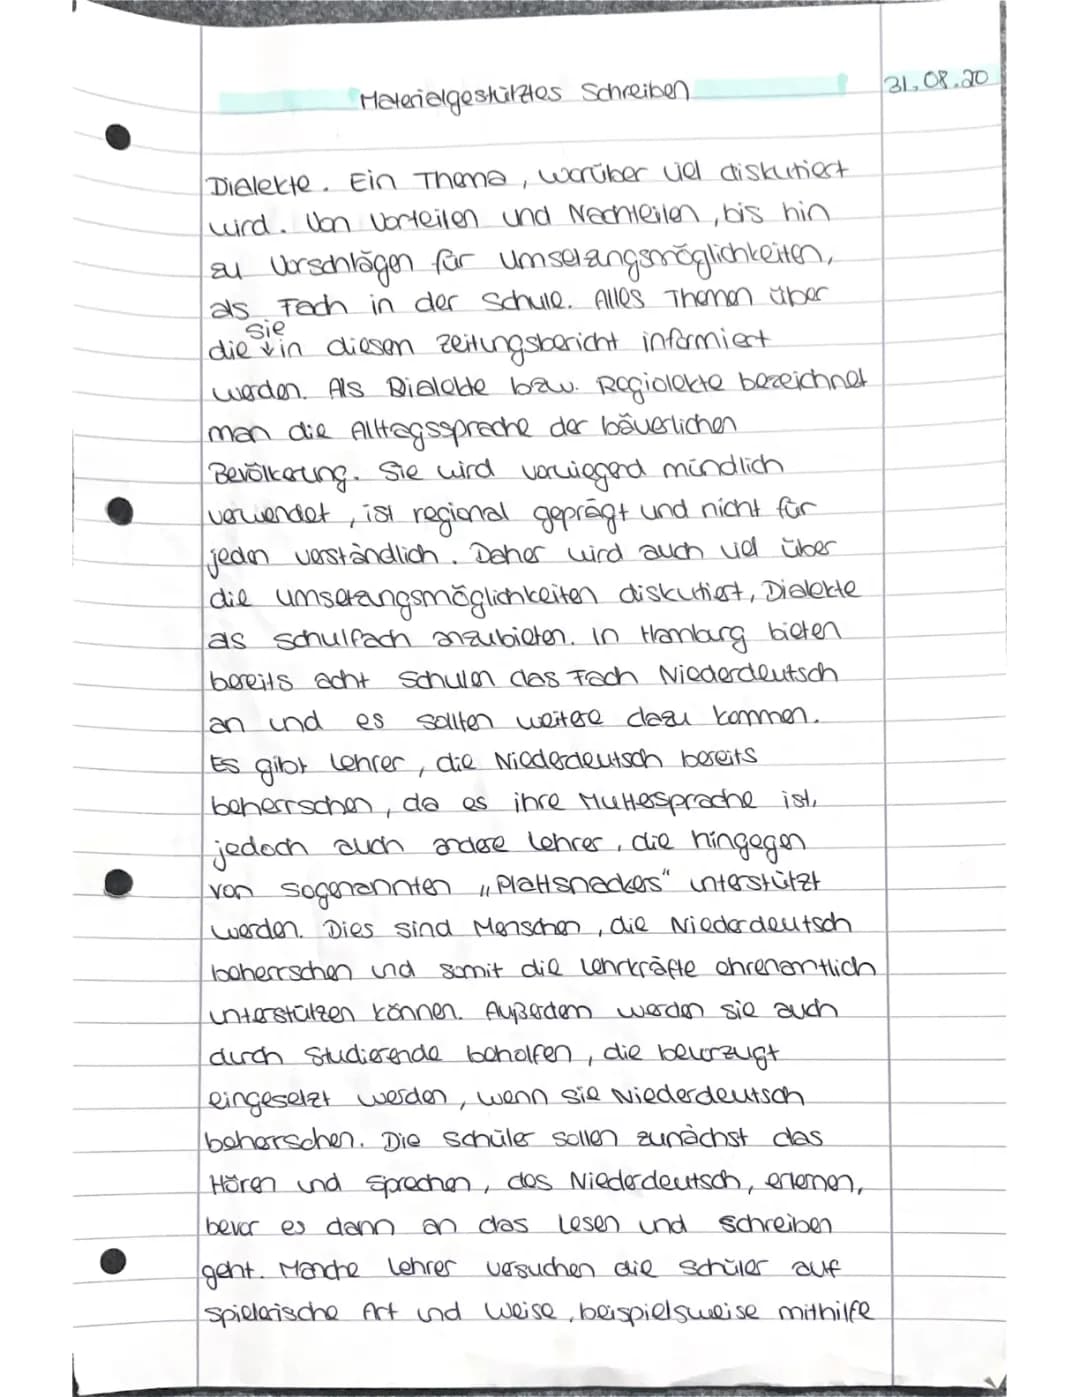 Materialgestütztes Schreiben
31.08.20
Dialekte. Ein Thema, worüber viel diskutiert
wird. Von Vorteilen und Nachteilen, bis hin
zu Vorschlägen für Umsetzungsmöglichkeiten,
als Fach in der Schule. Alles Themen über
die sie in diesem Zeitungsbericht informiert
werden. Als Dialekte bzw. Regiolekte bezeichnet
man die Alltagssprache der bäuerlichen
Bevölkerung. Sie wird vorwiegend mündlich
verwendet, ist regional geprägt und nicht für
jeden verständlich. Daher wird auch viel über
die Umsetzungsmöglichkeiten diskutiert, Dialekte
als Schulfach anzubieten. In Hamburg bieten
bereits acht Schulen das Fach Niederdeutsch
an und es sollten weitere dazu kommen.
Es gibt Lehrer, die Niederdeutsch bereits
beherrschen, da es ihre Muttersprache ist,
jedoch auch andere Lehrer, die hingegen
von sogenannten „Plattsnackers" unterstützt
werden. Dies sind Menschen, die Niederdeutsch
beherrschen und somit die Lehrkräfte ehrenamtlich
unterstützen können. Außerdem werden sie auch
durch Studierende beholfen, die bevorzugt
eingesetzt werden, wenn sie Niederdeutsch
beherrschen. Die Schüler sollen zunächst das
Hören und Sprechen, des Niederdeutsch, erlernen,
bevor es dann an das Lesen und Schreiben
geht. Manche Lehrer versuchen die Schüler auf
spielerische Art und Weise, beispielsweise mithilfe